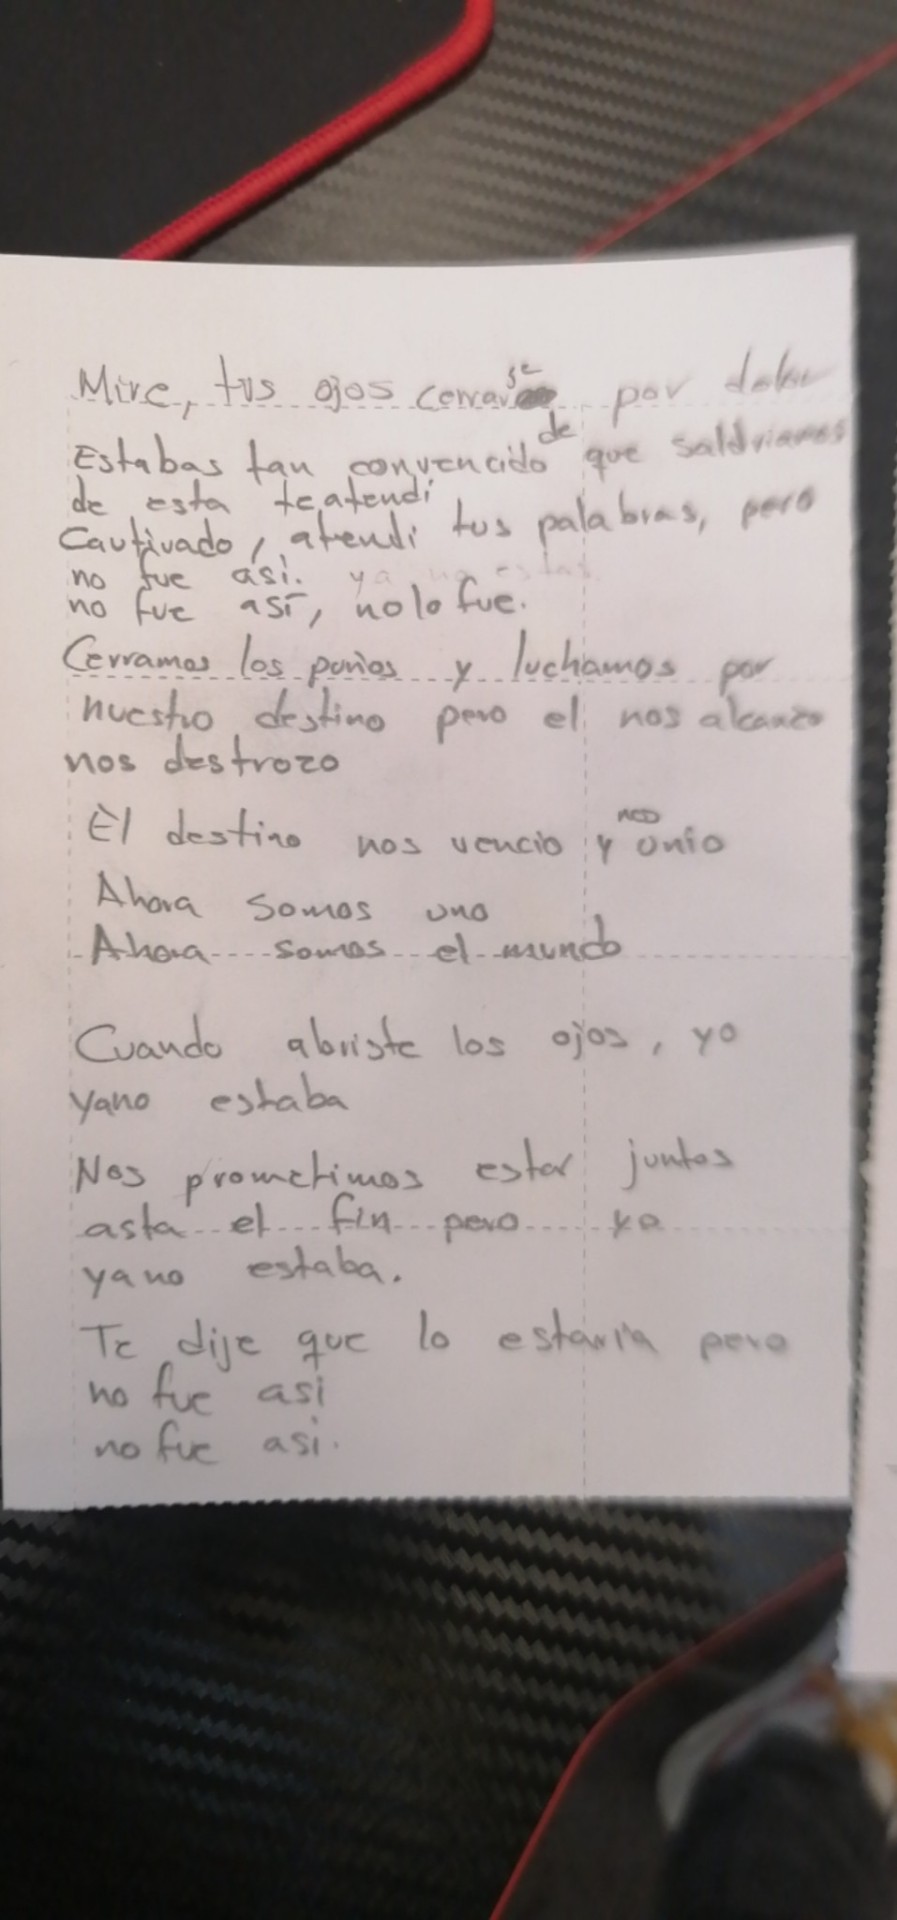 Mire, tus ojos cerrarse por dolor
Estabas tan convencido de que saldriamos
de esta te atendi
Cautivado, atendi tus palabras, pero
no fue asi. ya no estas
no fue así, no lo fue.
Cerramos los puños y luchamos por
nuestro destino pero el nos alcanzo
nos destrozo
Èl destino nos vencio y nos unio
Ahora somos uno
Ahora somos el mundo
Cuando abriste los ojos, yo
yano estaba
Nos prometimos estar juntos
asta el fin pero yo
yano estaba.
Te dije que lo estaria pero
no fue asi
no fue asi.